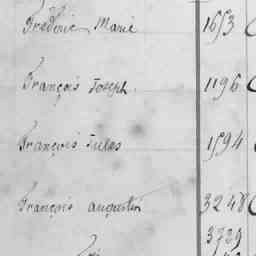 Frédéric Marie 1653
François Joseph. 1196
François Jules 1594
François Augustin 3248
3729